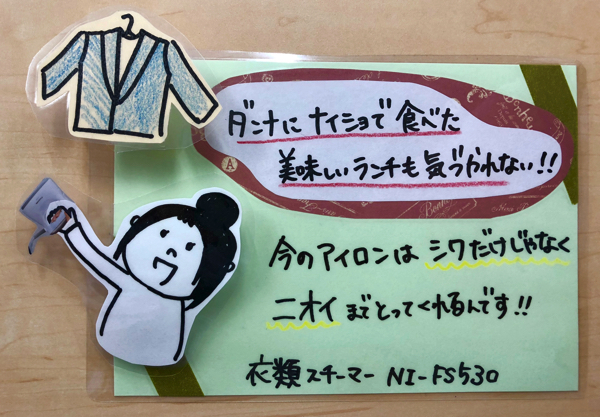 ダンナにナイショで食べた
美味しいランチも気づかれない!!
今のアイロンはシワだけじゃなく
ニオイまでとってくれるんです!!
衣類スチーマー NI-FS530